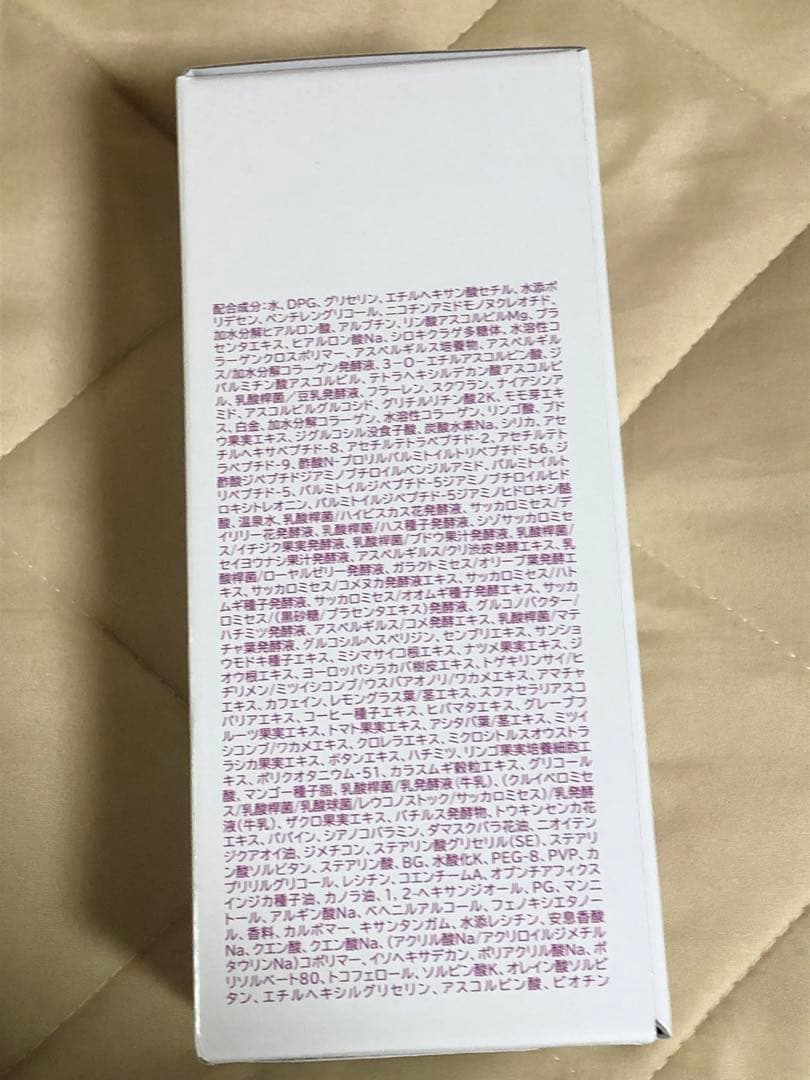 配合成分:水、DPG、グリセリン、エチルヘキサン酸セチル、水添ポ
リデセン、ペンチレングリコール、ニコチンアミドモノヌクレオチド、
加水分解ヒアルロン酸、アルブチン、リン酸アスコルビルMg、プラ
センタエキス、ヒアルロン酸Na、シロキクラゲ多糖体、水溶性コ
ラーゲンクロスポリマー、アスペルギルス培養物、アスペルギル
ス/加水分解コラーゲン発酵液、3-O-エチルアスコルビン酸、ジ
パルミチン酸アスコルビル、テトラヘキシルデカン酸アスコルビ
ル、乳酸桿菌/豆乳発酵液、フラーレン、スクワラン、ナイアシンア
ミド、アスコルビルグルコシド、グリチルリチン酸2K、モモ芽エキ
ス、白金、加水分解コラーゲン、水溶性コラーゲン、リンゴ酸、ブド
ウ果実エキス、ジグルコシル没食子酸、炭酸水素Na、シリカ、アセ
チルヘキサペプチド-8、アセチルテトラペプチド-2、アセチルテト
ラペプチド-9、酢酸N-プロリルパルミトイルトリペプチド-56、ジ
酢酸ジペプチドジアミノブチロイルベンジルアミド、パルミトイルト
リペプチド-5、パルミトイルジペプチド-5ジアミノブチロイルヒド
ロキシトレオニン、パルミトイルジペプチド-5ジアミノヒドロキシ酪
酸、温泉水、乳酸桿菌/ハイビスカス花発酵液、サッカロミセス/デ
イリリー花発酵液、乳酸桿菌/ハス種子発酵液、シゾサッカロミセ
ス/イチジク果実発酵液、乳酸桿菌/ブドウ果汁発酵液、乳酸桿菌/
セイヨウナシ果汁発酵液、アスペルギルス/クリ渋皮発酵エキス、乳
酸桿菌/ローヤルゼリー発酵液、ガラクトミセス/オリーブ葉発酵エ
キス、サッカロミセス/コメヌカ発酵液エキス、サッカロミセス/ハト
ムギ種子発酵液、サッカロミセス/オオムギ種子発酵エキス、サッカ
ロミセス/(黒砂糖/プラセンタエキス)発酵液、グルコノバクター/
ハチミツ発酵液、アスペルギルス/コメ発酵エキス、乳酸桿菌/マテ
チャ葉発酵液、グルコシルヘスペリジン、センブリエキス、サンショ
ウモドキ種子エキス、ミシマサイコ根エキス、ナツメ果実エキス、ジ
オウ根エキス、ヨーロッパシラカバ樹皮エキス、トゲキリンサイ/ヒ
ヂリメン/ミツイシコンブ/ウスバアオノリ/ワカメエキス、アマチャ
エキス、カフェイン、レモングラス葉/茎エキス、スファセラリアスコ
パリアエキス、コーヒー種子エキス、ヒバマタエキス、グレープフ
ルーツ果実エキス、トマト果実エキス、アシタバ葉/茎エキス、ミツイ
シコンブ/ワカメエキス、クロレラエキス、ミクロシトルスオウストラ
ラシカ果実エキス、ボタンエキス、ハチミツ、リンゴ果実培養細胞エ
キス、ポリクオタニウム-51、カラスムギ穀粒エキス、グリコール
酸、マンゴー種子脂、乳酸桿菌/乳発酵液(牛乳)、(クルイベロミセ
ス/乳酸桿菌/乳酸球菌/レウコノストック/サッカロミセス)/乳発酵
液(牛乳)、ザクロ果実エキス、バチルス発酵物、トウキンセンカ花
エキス、パパイン、シアノコバラミン、ダマスクバラ花油、ニオイテン
ジクアオイ油、ジメチコン、ステアリン酸グリセリル(SE)、ステアリ
ン酸ソルビタン、ステアリン酸、BG、水酸化K、PEG-8、PVP、カ
プリリルグリコール、レシチン、コエンチームA、オプンチアフィクス
インジカ種子油、カノラ油、1,2-ヘキサンジオール、PG、マンニ
トール、アルギン酸Na、ベヘニルアルコール、フェノキシエタノー
ル、香料、カルボマー、キサンタンガム、水添レシチン、安息香酸
Na、クエン酸、クエン酸Na、(アクリル酸Na/アクリロイルジメチル
タウリンNa)コポリマー、イソヘキサデカン、ポリアクリル酸Na、ポ
リソルベート80、トコフェロール、ソルビン酸K、オレイン酸ソルビ
タン、エチルヘキシルグリセリン、アスコルビン酸、ビオチン